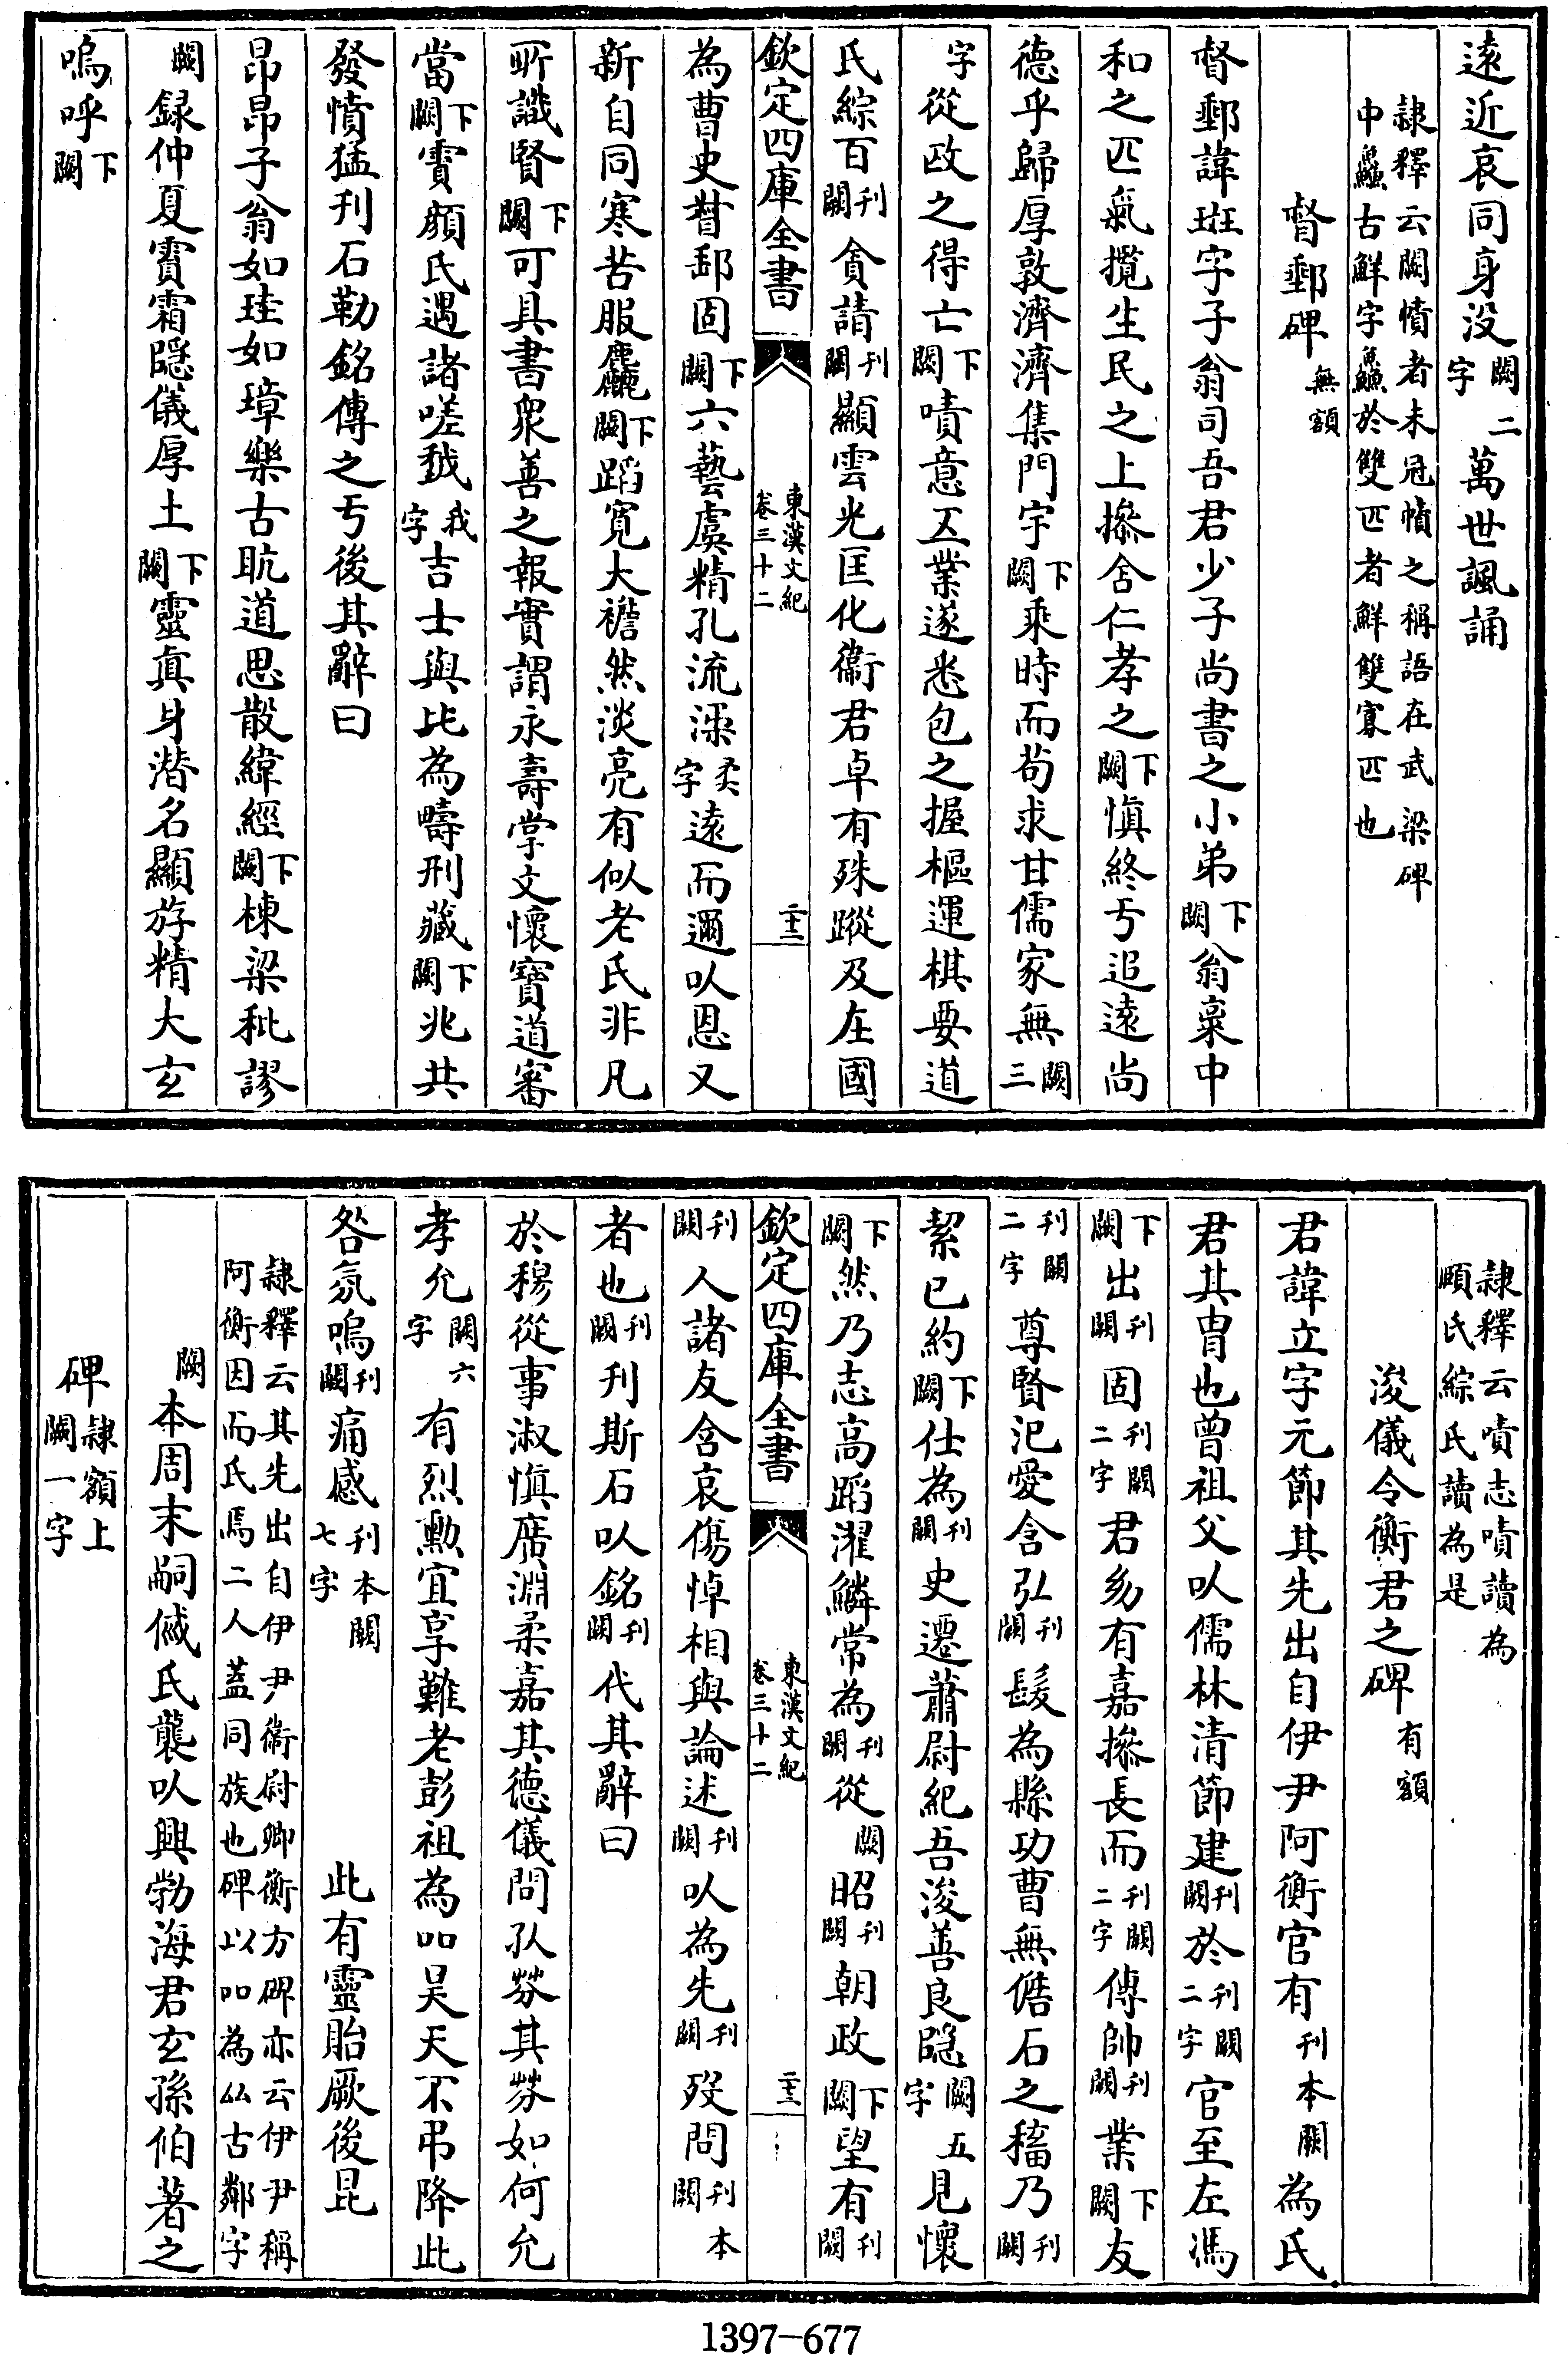 遠近哀同身没闕二字萬世諷誦
隷釋云闕憤者未冠幘之稱語在武梁碑
中鱻古鮮字鱻於雙匹者鮮雙寡匹也
督郵碑無額
督郵諱斑字子翁司吾君少子尚書之小弟下闕翁稟中
和之匹氣攬生民之上摻含仁孝之下闕慎終于追遠尚
德乎歸厚敦濟濟集門宇下闕乘時而茍求甘儒家無闕三
字從政之得亡下闕嘖意五業遂悉包之握樞運棋要道
氏綜百刊闕貪請刊闕顯雲光匡化衞君卓有殊蹤及在國
欽定四庫全書
東漢文紀
卷三十二
二十三
為曹史督郵固下闕六藝虞精孔流渘柔字遠而邇以恩又
新自同寒苦服麤下闕蹈寛大襜然淡亮有似老氏非凡
所識賢下闕可具書衆善之報實謂永壽掌文懷寶道審
當下闕賓顔氏遇諸嗟㦲我字吉士與比為疇刑藏下闕兆共
發憤猛刊石勒銘傳之于後其辭曰
昂昂子翁如珪如璋樂古耽道思散緯經下闕棟梁秕謬
闕録仲夏賓霜隠儀厚土下闕靈真身潛名顯斿精大玄
嗚呼下闕
隷釋云嘖志嘖讀為
頤氏綜氏讀為是
浚儀令衡君之碑有額
君諱立字元節其先出自伊尹阿衡官有刊本闕為氏
君其胄也曾祖父以儒林清節建刊闕於刊闕二字官至左馮
下闕出刊闕固刊闕二字君幼有嘉摻長而刊闕二字傳帥刊闕業下闕友
刊闕二字尊賢汜愛含弘刊闕髮為縣功曹無儋石之稸乃刊闕
絜已約下闕仕為刊闕史遷蕭尉紀吾浚善良隠闕五字見懷
下闕然乃志高蹈濯鱗常為刊闕從闕昭刊闕朝政下闕望有刊闕
欽定四庫全書
東漢文紀
卷三十二
二十三
刊闕人諸友含哀傷悼相與論述刊闕以為先刊闕歿問刊本闕
者也刊闕刊斯石以銘刊闕代其辭曰
於穆從事淑慎席淵柔嘉其德儀問孔芬其芬如何允
孝允闕六字有烈勲宜享難老彭祖為㕕昊天不弔降此
咎氛嗚刊闕痛感刊本闕七字此有靈胎厥後昆
隷釋云其先出自伊尹衛尉卿衡方碑亦云伊尹稱
阿衡因而氏焉二人蓋同族也碑以㕕為㕕古鄰字
闕本周末嗣㒈氏襲以興勃海君玄孫伯著之
碑隷額上闕一字
1397-677